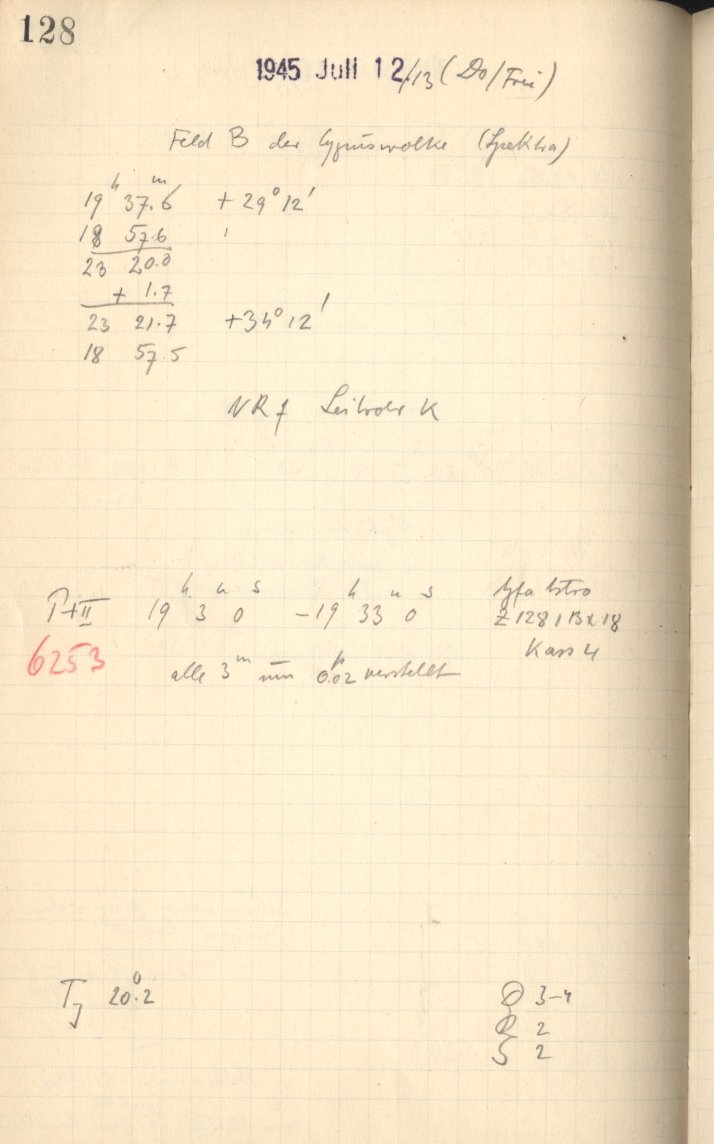 128
1945 Juli 12/13 (Do/Frei)
Feld B der Cygnuswolke (Spektra)
19 h 37.6 m + 29° 12'
18 57.6 '
23 20.0
+ 1.7
23 21.7 + 34° 12'
18 57.5
NRf Leitrohr K
P+II 19 h 3 m 0 s – 19 h 33 m 0 s Agfa Astro
Z 128 13 x 18
6253 Kass 4
alle 3 m um 0.02 verstellt
T 20.°2
Q 3-4
R 2
S 2